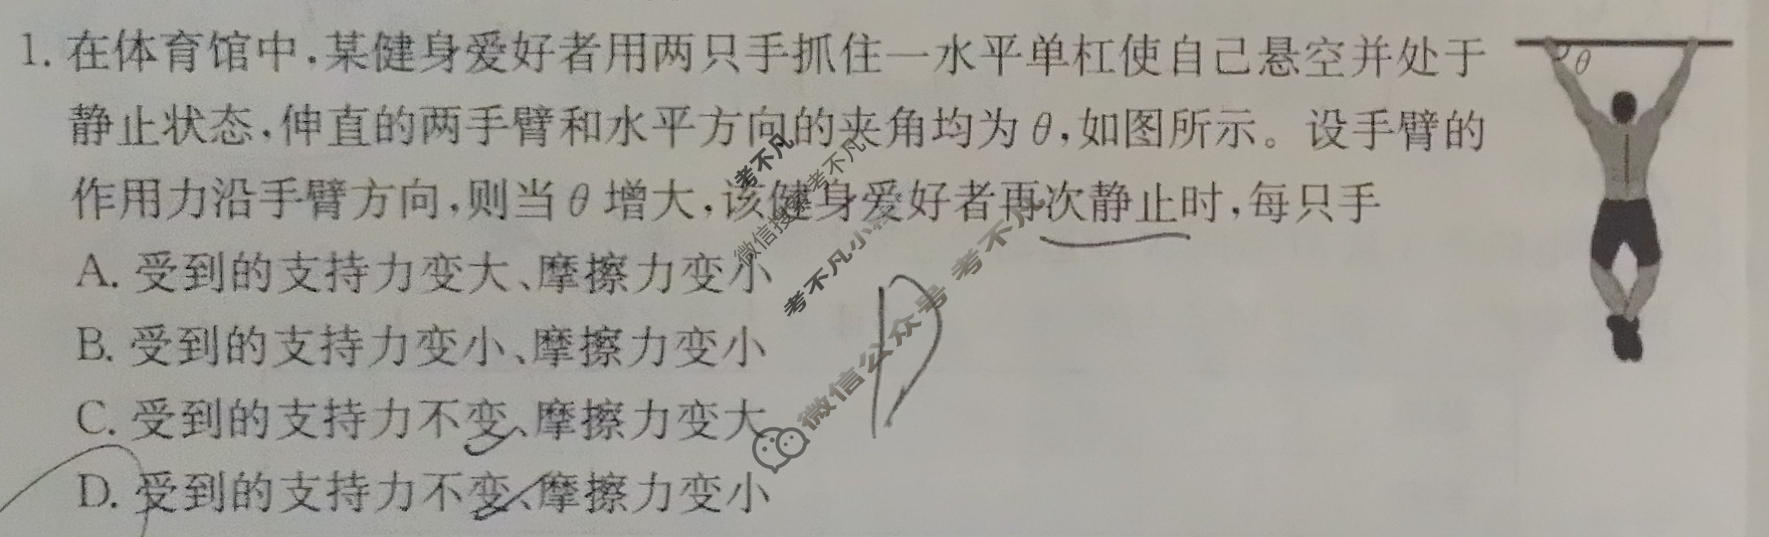 1. 在体育馆中，某健身爱好者用两只手抓住一水平单杠使自己悬空并处于
静止状态，伸直的两手臂和水平方向的夹角均为θ，如图所示。设手臂的
作用力沿手臂方向，则当θ增大，该健身爱好者再次静止时，每只手
A. 受到的支持力变大、摩擦力变小
B. 受到的支持力变小、摩擦力变小
C. 受到的支持力不变、摩擦力变大
D. 受到的支持力不变、摩擦力变小
θ
D
考不凡
考不凡
考不凡
微信公众号